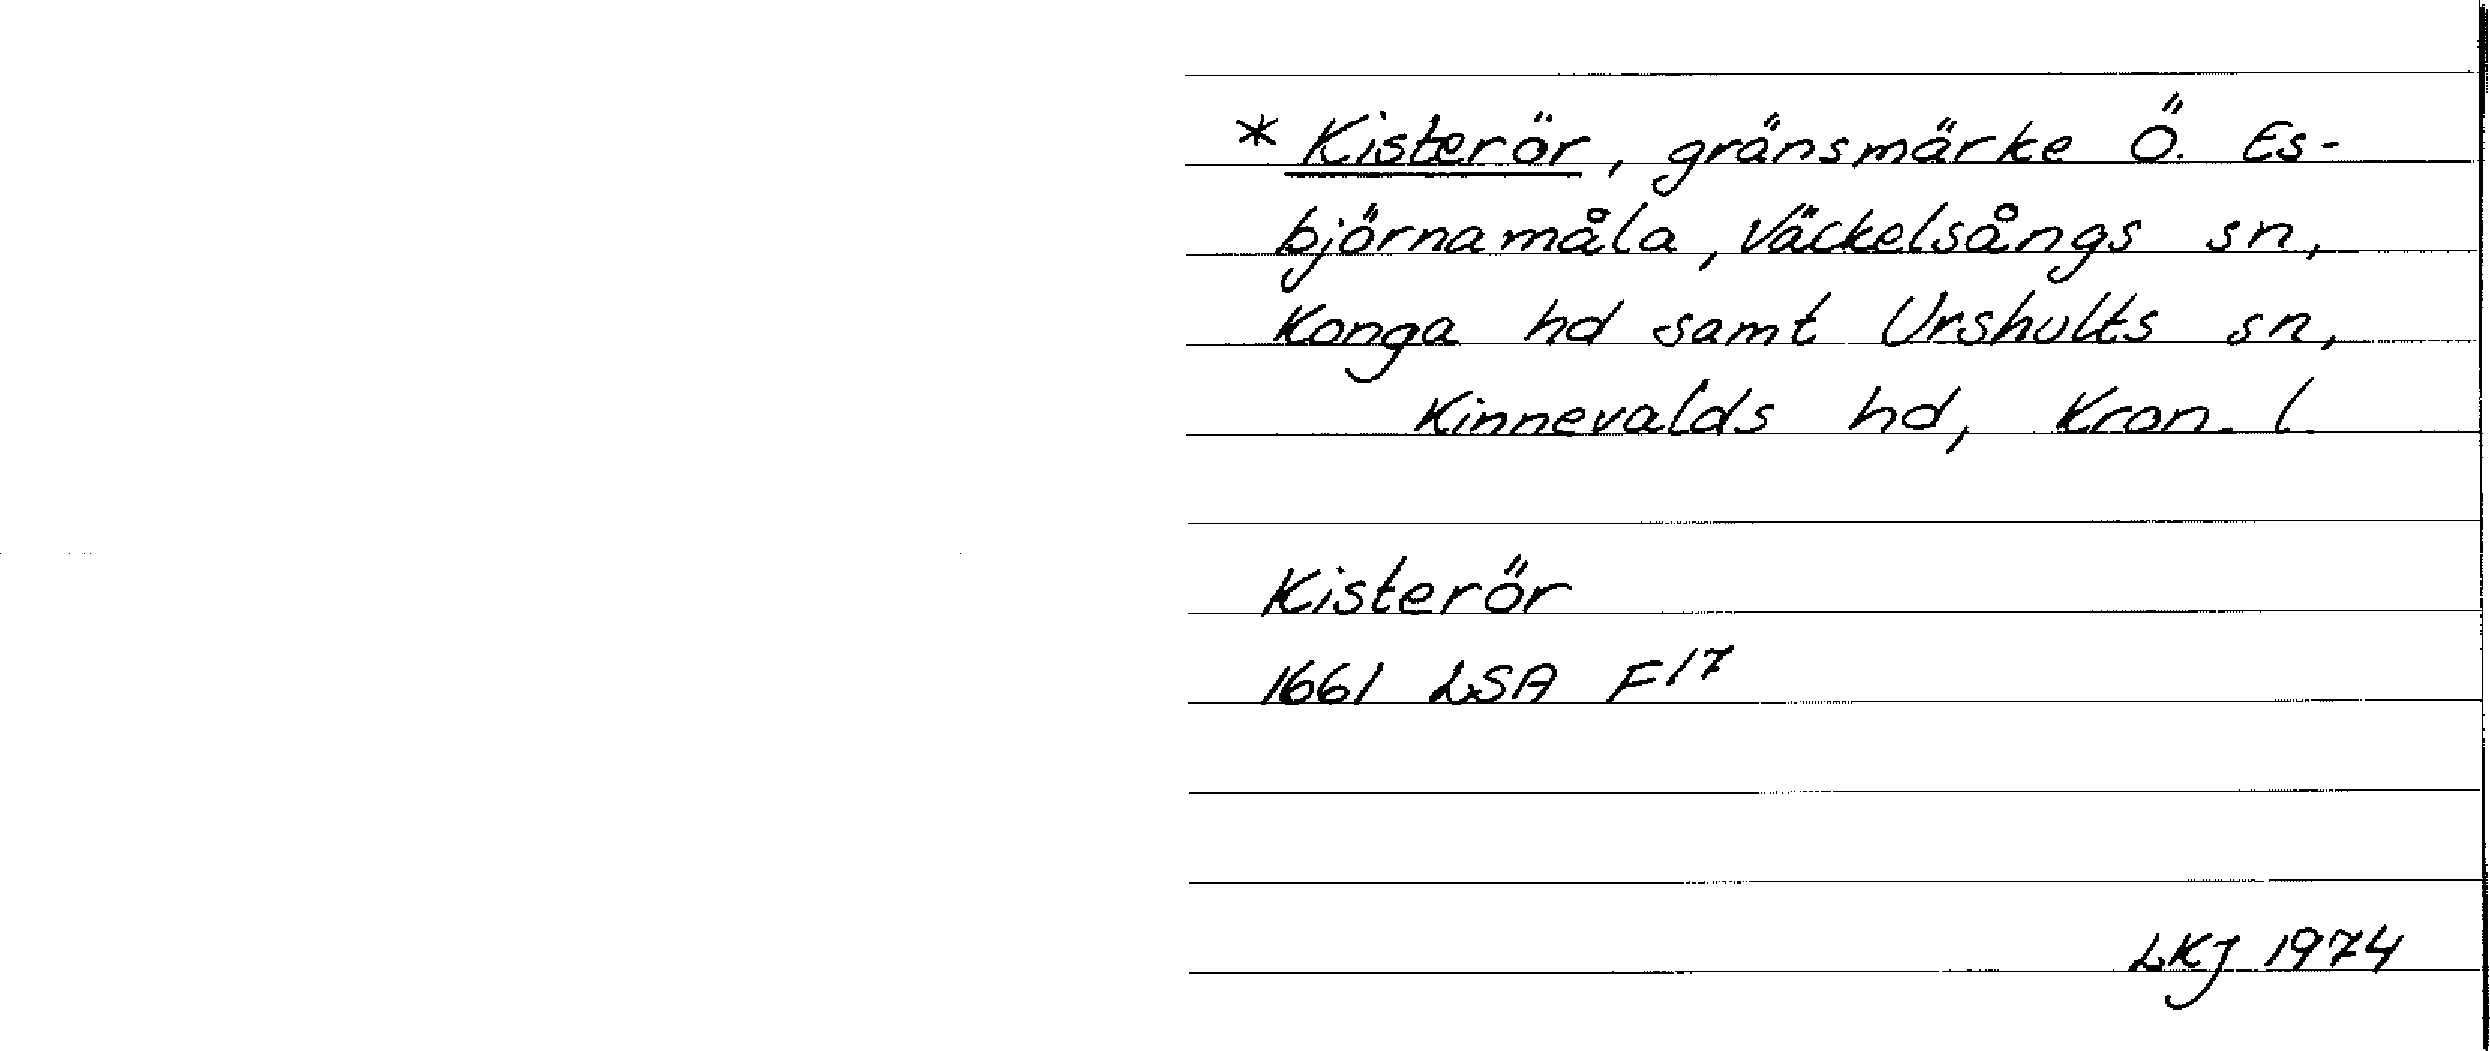 * Kisterör, gränsmärke Ö. Es-
björnamåla, Väckelsångs sn,
Konga hd samt Urshults sn,
Kinnevalds hd, Kron. l.
Kisterör
1661 LSA F17
LKJ 1974